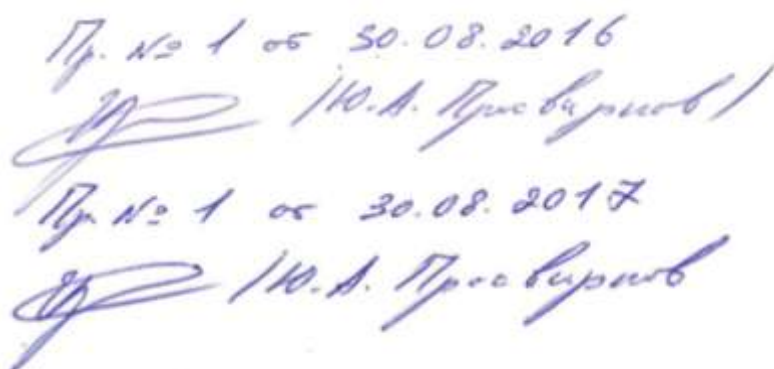 Пр. № 1 от 30.08.2016
/Ю.А. Просвирнов/
Пр. № 1 от 30.08.2017
/Ю.А. Просвирнов